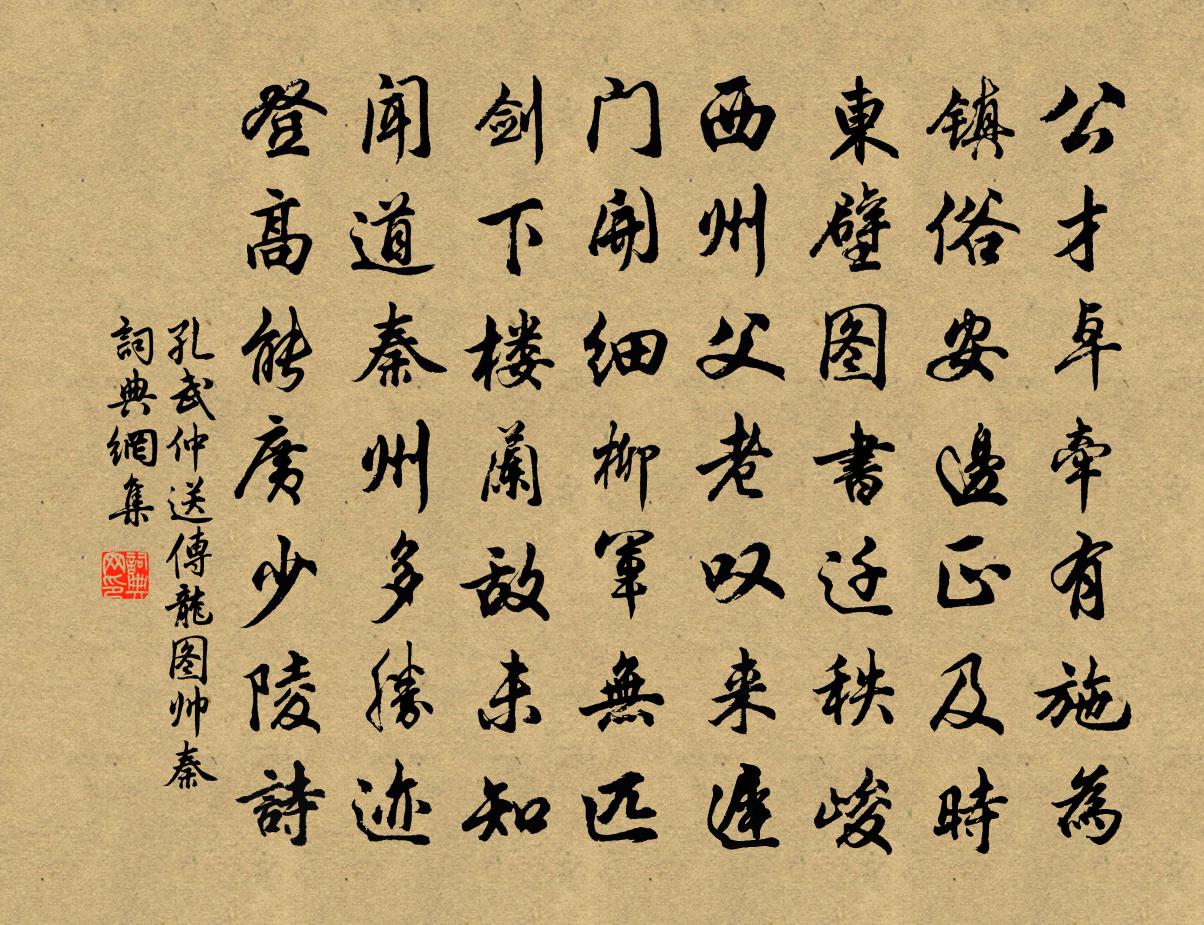 公才卓荦有施為
镇俗安邊正及時
東壁图書迁秩峻
西州父老叹来遲
门開细柳軍無匹
剑下楼蘭敌未知
闻道秦州多勝迹
登高能廣少陵詩
孔武仲送傅龍图帅秦
詞典網集
詞典网印